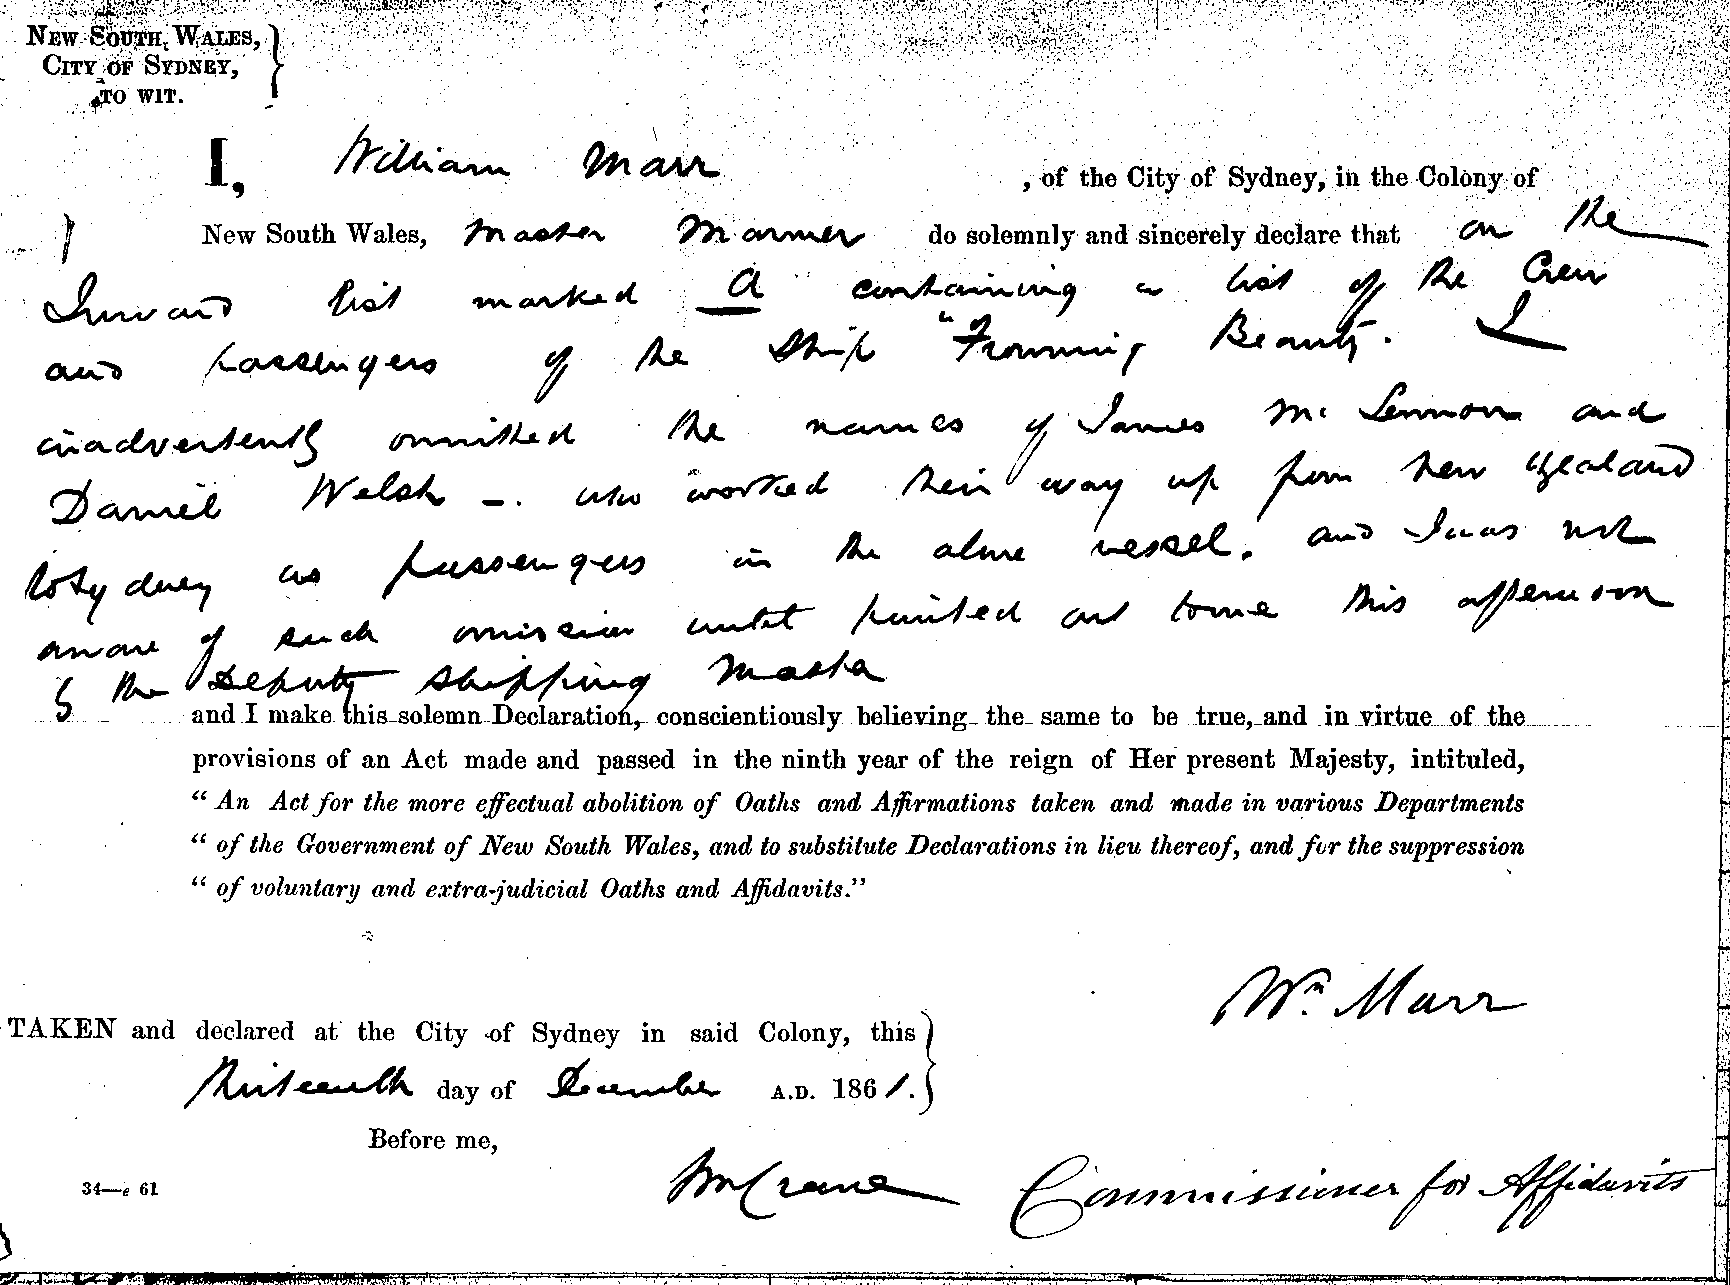 NEW SOUTH WALES,
CITY OF SYDNEY,
TO WIT.
I, William Marr , of the City of Sydney, in the Colony of
New South Wales, Master Mariner do solemnly and sincerely declare that on the
Inward list marked A containing a list of the Crew
and passengers of the Ship "Frowning Beauty. I
inadvertently omitted the names of James Mc Lennon and
Daniel Welsh - . who worked their way up from New Zealand
to Sydney as passengers in the above vessel. and I was not
aware of such omission until pointed out to me this afternoon
by the Deputy Shipping Master
and I make this solemn Declaration, conscientiously believing the same to be true, and in virtue of the
provisions of an Act made and passed in the ninth year of the reign of Her present Majesty, intituled,
“ An Act for the more effectual abolition of Oaths and Affirmations taken and made in various Departments
“ of the Government of New South Wales, and to substitute Declarations in lieu thereof, and for the suppression
“ of voluntary and extra-judicial Oaths and Affidavits.”
Wm. Marr
TAKEN and declared at the City of Sydney in said Colony, this
thirteenth day of December A.D. 1861.
Before me,
Crane Commissioner for Affidavits
34—e 61